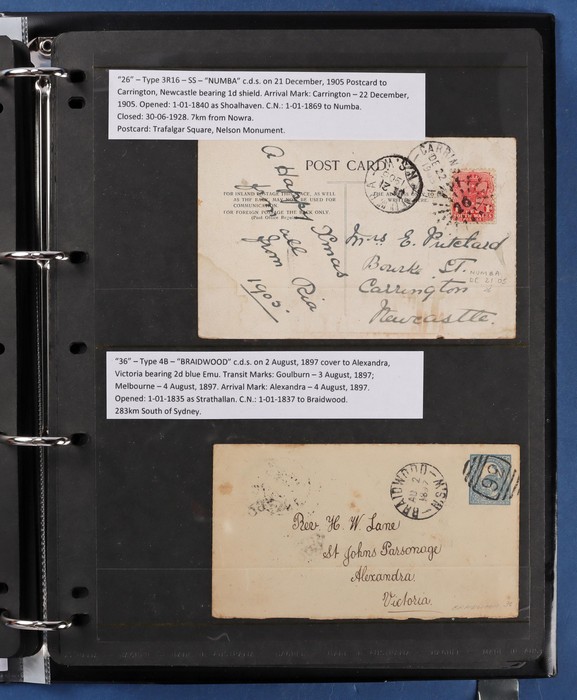 "26" – Type 3R16 – SS – "NUMBA" c.d.s. on 21 December, 1905 Postcard to
Carrington, Newcastle bearing 1d shield. Arrival Mark: Carrington – 22 December,
1905. Opened: 1-01-1840 as Shoalhaven. C.N.: 1-01-1869 to Numba.
Closed: 30-06-1928. 7km from Nowra.
Postcard: Trafalgar Square, Nelson Monument.
POST CARD
FOR INLAND POSTAGE THIS PLACE, AS WELL
AS THE BACK, MAY BE USED FOR
COMMUNICATION
FOR FOREIGN POSTAGE THE BACK ONLY
A Happy Xmas
you all
from Ria
1905.
CARRING
DE 22
Mrs E. Pritchard
Bourke St.
Carrington
Newcastle.
NUMBA
DE 21 05
"36" – Type 4B – "BRAIDWOOD" c.d.s. on 2 August, 1897 cover to Alexandra,
Victoria bearing 2d blue Emu. Transit Marks: Goulburn – 3 August, 1897;
Melbourne – 4 August, 1897. Arrival Mark: Alexandra – 4 August, 1897.
Opened: 1-01-1835 as Strathallan. C.N.: 1-01-1837 to Braidwood.
283km South of Sydney.
BRAIDWOOD N.S.W
AU 2
1897
Rev. H. W. Lane
St Johns Parsonage
Alexandra
Victoria